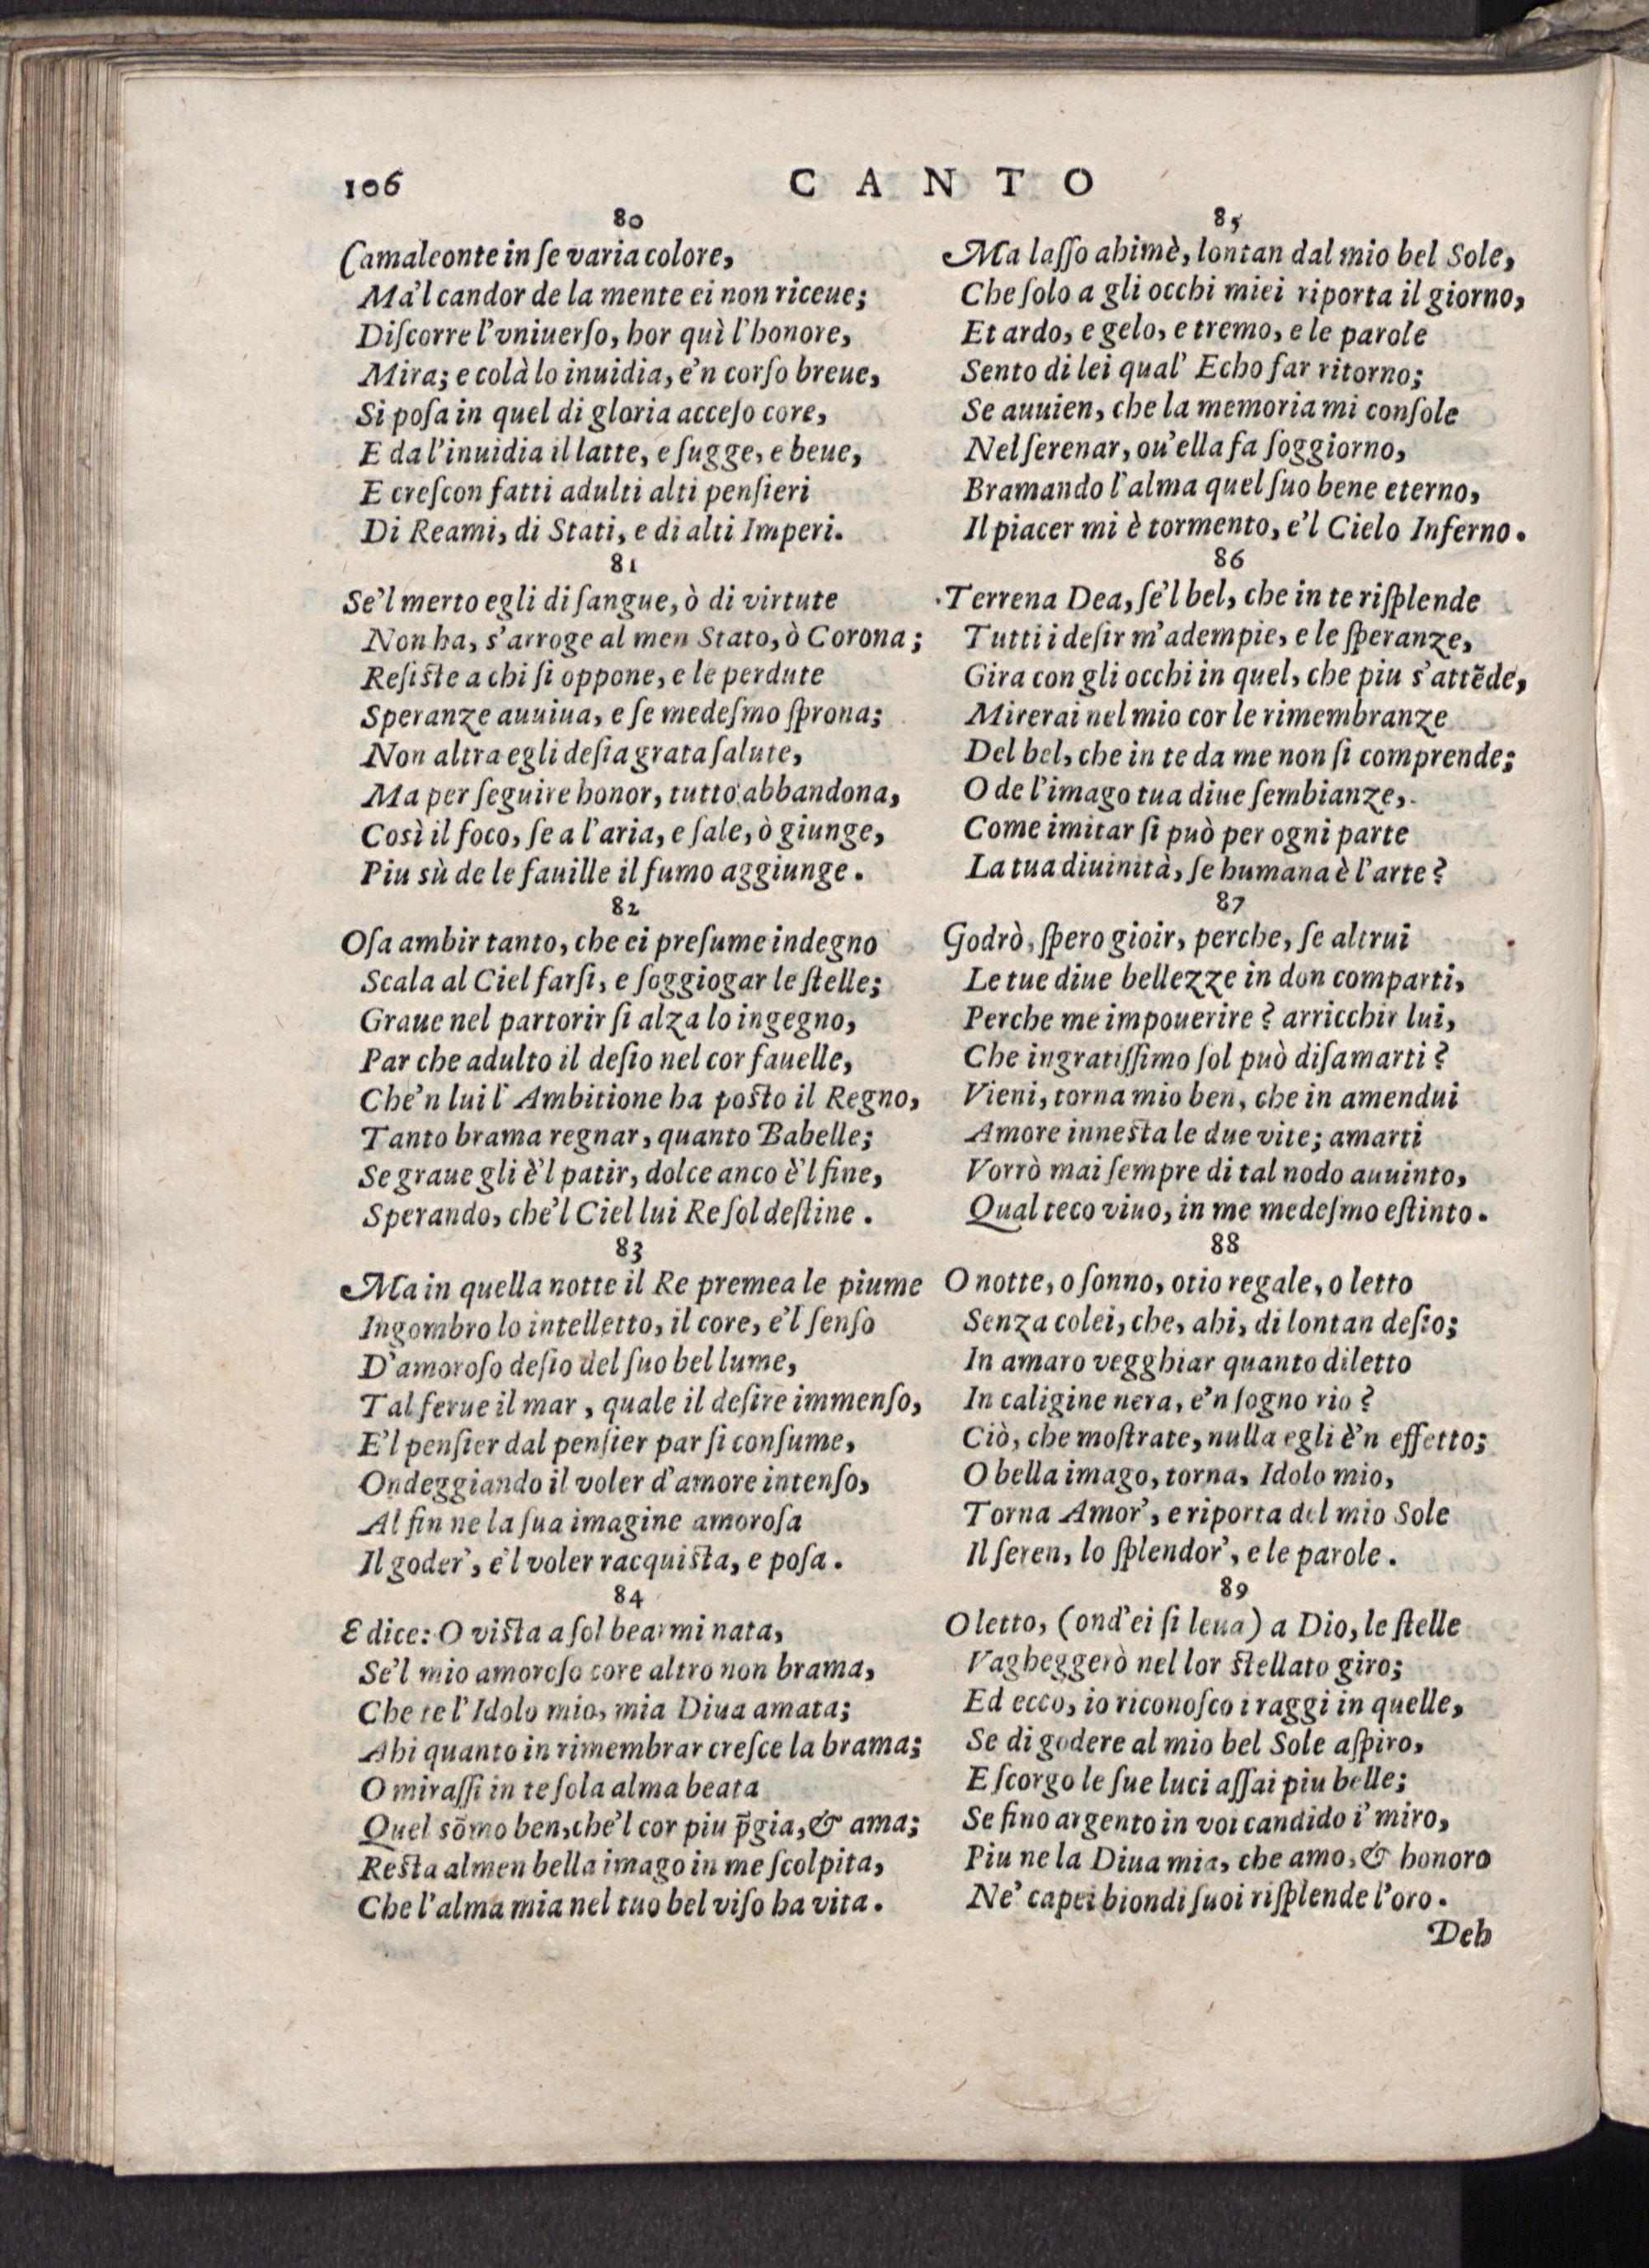 106
CANTO
80
Camaleonte in ſe varia colore,
Ma'l candor de la mente ei non riceue;
Diſcorre l'vniuerſo, hor quì l'honore,
Mira; e colà lo inuidia, e'n corſo breue,
Si poſa in quel di gloria acceſo core,
E da l'inuidia il latte, e ſugge, e beue,
E creſcon fatti adulti alti penſieri
Di Reami, di Stati, e di alti Imperi.
81
Se'l merto egli di ſangue, ò di virtute
Non ha, s'arroge al men Stato, ò Corona;
Reſiſte a chi ſi oppone, e le perdute
Speranze auuiua, e ſe medeſmo ſprona;
Non altra egli deſia grata ſalute,
Ma per ſeguire honor, tutto abbandona,
Così il foco, ſe a l'aria, e ſale, ò giunge,
Piu sù de le fauille il fumo aggiunge.
82
Oſa ambir tanto, che ei preſume indegno
Scala al Ciel farſi, e ſoggiogar le ſtelle;
Graue nel partorir ſi alza lo ingegno,
Par che adulto il deſio nel cor fauelle,
Che'n lui l'Ambitione ha poſto il Regno,
Tanto brama regnar, quanto Babelle;
Se graue gli è'l patir, dolce anco è'l fine,
Sperando, che'l Ciel lui Re ſol deſtine.
83
Ma in quella notte il Re premea le piume
Ingombro lo intelletto, il core, e'l ſenſo
D'amoroſo deſio del ſuo bel lume,
Tal ferue il mar, quale il deſire immenſo,
E'l penſier dal penſier par ſi conſume,
Ondeggiando il voler d'amore intenſo,
Al fin ne la ſua imagine amoroſa
Il goder', e'l voler racquiſta, e poſa.
84
E dice: O viſta a ſol bearmi nata,
Se'l mio amoroſo core altro non brama,
Che te l'Idolo mio, mia Diua amata;
Ahi quanto in rimembrar creſce la brama;
O miraſſi in te ſola alma beata
Quel sõmo ben, che'l cor piu p̃gia, & ama;
Reſta almen bella imago in me ſcolpita,
Che l'alma mia nel tuo bel viſo ha vita.
85
Ma laſſo ahimè, lontan dal mio bel Sole,
Che ſolo a gli occhi miei riporta il giorno,
Et ardo, e gelo, e tremo, e le parole
Sento di lei qual' Echo far ritorno;
Se auuien, che la memoria mi conſole
Nel ſerenar, ou'ella fa ſoggiorno,
Bramando l'alma quel ſuo bene eterno,
Il piacer mi è tormento, e'l Cielo Inferno.
86
Terrena Dea, ſe'l bel, che in te riſplende
Tutti i deſir m'adempie, e le ſperanze,
Gira con gli occhi in quel, che piu s'attẽde,
Mirerai nel mio cor le rimembranze
Del bel, che in te da me non ſi comprende;
O de l'imago tua diue ſembianze,
Come imitar ſi può per ogni parte
La tua diuinità, ſe humana è l'arte?
87
Godrò, ſpero gioir, perche, ſe altrui
Le tue diue bellezze in don comparti,
Perche me impouerire? arricchir lui,
Che ingratiſſimo ſol può diſamarti?
Vieni, torna mio ben, che in amendui
Amore inneſta le due vite; amarti
Vorrò mai ſempre di tal nodo auuinto,
Qual teco viuo, in me medeſmo eſtinto.
88
O notte, o ſonno, otio regale, o letto
Senza colei, che, ahi, di lontan deſio;
In amaro vegghiar quanto diletto
In caligine nera, e'n ſogno rio?
Ciò, che moſtrate, nulla egli è'n effetto;
O bella imago, torna, Idolo mio,
Torna Amor', e riporta del mio Sole
Il ſeren, lo ſplendor', e le parole.
89
O letto, (ond'ei ſi leua) a Dio, le ſtelle
Vagheggerò nel lor ſtellato giro;
Ed ecco, io riconoſco i raggi in quelle,
Se di godere al mio bel Sole aſpiro,
E ſcorgo le ſue luci aſſai piu belle;
Se fino argento in voi candido i' miro,
Piu ne la Diua mia, che amo, & honoro
Ne' capei biondi ſuoi riſplende l'oro.
Deh